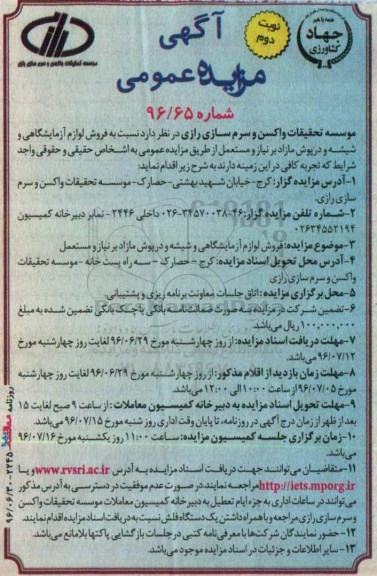 نوبت دوم
آگهی
مزایده عمومی
همه با هم
جهاد
کشاورزی
موسسه تحقیقات واکسن و سرم سازی رازی
شماره ۹۶/۶۵
موسسه تحقیقات واکسن و سرم سازی رازی در نظر دارد نسبت به فروش لوازم آزمایشگاهی و
شیشه و درپوش مازاد بر نیاز و مستعمل از طریق مزایده عمومی به اشخاص حقیقی و حقوقی واجد
شرایط که تجربه کافی در این زمینه دارند به شرح زیر اقدام نماید:
۱-آدرس مزایده گزار: کرج- خیابان شهید بهشتی- حصارک- موسسه تحقیقات واکسن و سرم
سازی رازی.
۲-شماره تلفن مزایده گزار: ۴۶-۳۴۵۷۰۰۳۸-۰۲۶ داخلی ۲۴۴۶ - نمابر دبیرخانه کمیسیون
۰۲۶۳۴۵۵۲۱۹۴
۳-موضوع مزایده: فروش لوازم آزمایشگاهی و شیشه و درپوش مازاد بر نیاز و مستعمل
۴-آدرس محل تحویل اسناد مزایده: کرج - حصارک - سه راه پست خانه - موسسه تحقیقات
واکسن و سرم سازی رازی
۵-محل برگزاری مزایده: اتاق جلسات معاونت برنامه ریزی و پشتیبانی.
۶-تضمین شرکت در مزایده به صورت ضمانتنامه بانکی یا چک بانکی تضمین شده به مبلغ
۱۰۰,۰۰۰,۰۰۰ ریال می باشد.
۷-مهلت دریافت اسناد مزایده: از روز چهارشنبه مورخ ۹۶/۰۶/۲۹ لغایت روز چهارشنبه مورخ
۹۶/۰۷/۱۲ می باشد.
۸-مهلت زمان بازدید از اقلام مذکور: از روز چهارشنبه مورخ ۹۶/۰۶/۲۹ لغایت روز چهارشنبه
مورخ ۹۶/۰۷/۰۵ از ساعت ۱۰:۰۰ الی ۱۲:۰۰ می باشد.
۹-مهلت تحویل اسناد مزایده به دبیرخانه کمیسیون معاملات: از ساعت ۹ صبح لغایت ۱۵
بعد از ظهر از زمان درج آگهی در روزنامه، تا پایان وقت اداری روز شنبه مورخ ۹۶/۰۷/۱۵ می باشد.
۱۰-زمان برگزاری جلسه کمیسیون مزایده: ساعت ۱۱:۰۰ روز یکشنبه مورخ ۹۶/۰۷/۱۶
می باشد.
۱۱-متقاضیان می توانند جهت دریافت اسناد مزایده به آدرس www.rvsri.ac.ir و یا
http://iets.mporg.ir مراجعه نمایند در صورت عدم موفقیت در دسترسی به آدرس مذکور
می توانند در ساعات اداری به جزء ایام تعطیل به دبیرخانه کمیسیون معاملات موسسه تحقیقات واکسن
و سرم سازی رازی مراجعه و با همراه داشتن یک دستگاه فلش نسبت به دریافت اسناد مزایده اقدام نمایند.
۱۲-حضور نمایندگان شرکت ها با معرفی نامه کتبی در جلسات بازگشایی پاکتها بلامانع می باشد.
۱۳-سایر اطلاعات و جزئیات در اسناد مزایده موجود می باشد.
روزنامه ۲۲۴۵-۹۶/۰۶/۳۰